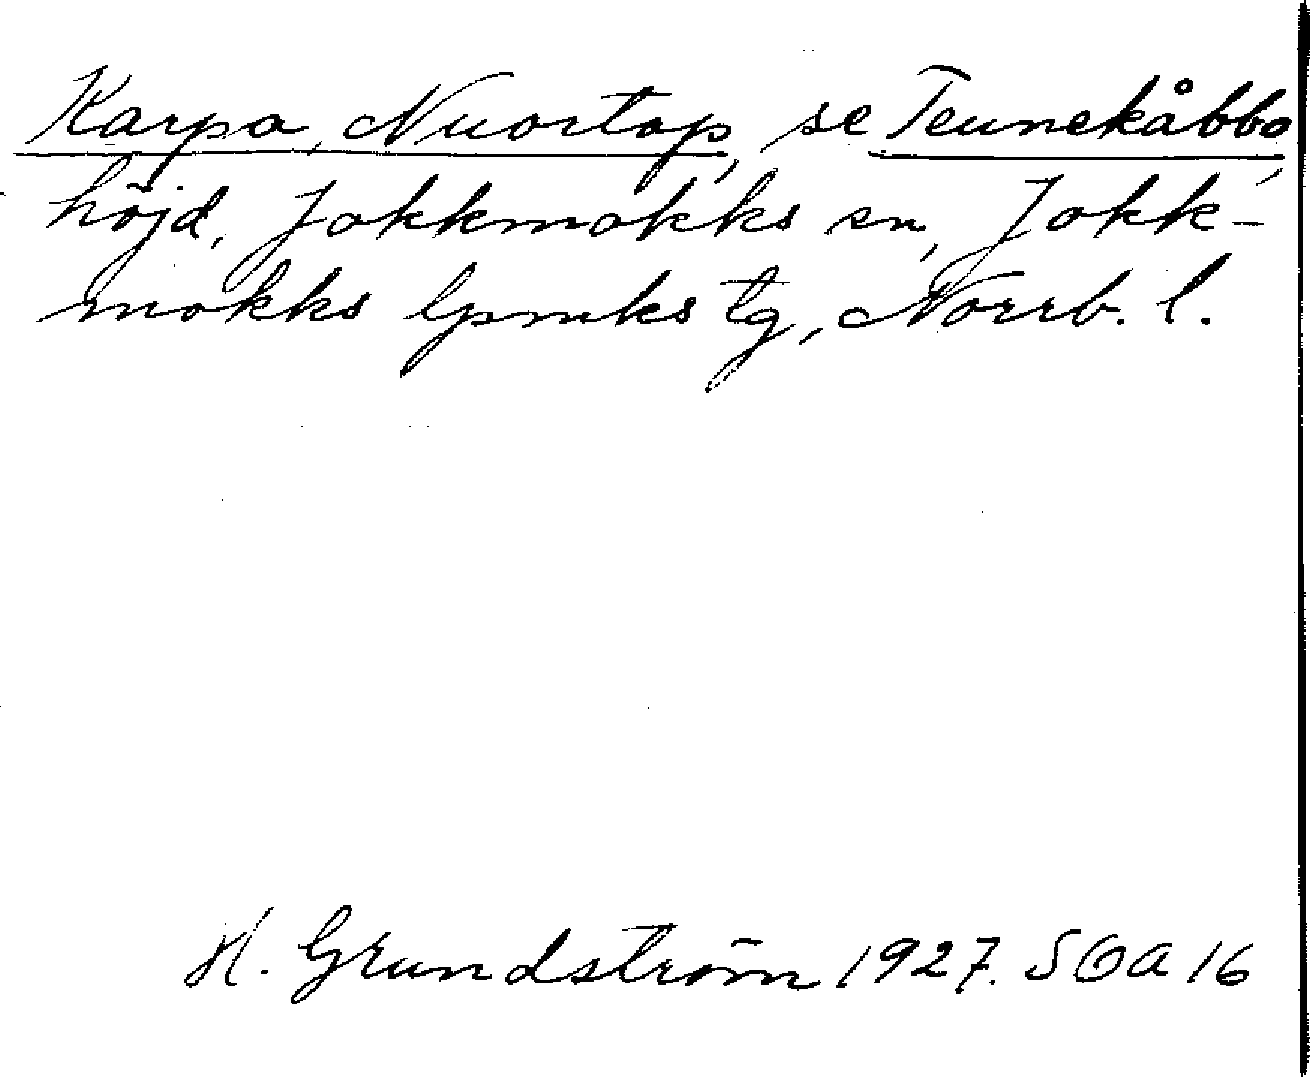 Karpa, Nuortap, se Teunekåbbo,
höjd, Jokkmokks sn, Jokk-
mokks lpmks tg, Norrb. l.
H. Grundström 1927. SOA 16